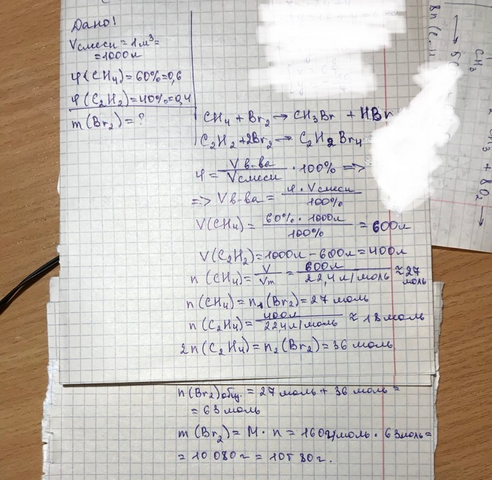 Дано!
Vсмеси = 1м³ =
= 1000л
φ(CH₄) = 60% = 0,6
φ(C₂H₂) = 40% = 0,4
m(Br₂) = ?
CH₄ + Br₂ → CH₃Br + HBr
C₂H₂ + 2Br₂ → C₂H₂Br₄
φ = V в-ва / Vсмеси · 100% =>
=> V в-ва = φ · Vсмеси / 100%
V(CH₄) = 60% · 1000л / 100% = 600л
V(C₂H₂) = 1000л - 600л = 400л
n(CH₄) = V / Vm = 600л / 22,4л/моль ≈ 27 моль
n(CH₄) = n₁(Br₂) = 27 моль
n(C₂H₄) = 400л / 22,4л/моль ≈ 18 моль
2n(C₂H₄) = n₂(Br₂) = 36 моль
n(Br₂)общ. = 27 моль + 36 моль =
= 63 моль
m(Br₂) = M · n = 160г/моль · 63 моль =
= 10 080г =
CH₃
+ 8O₂ →